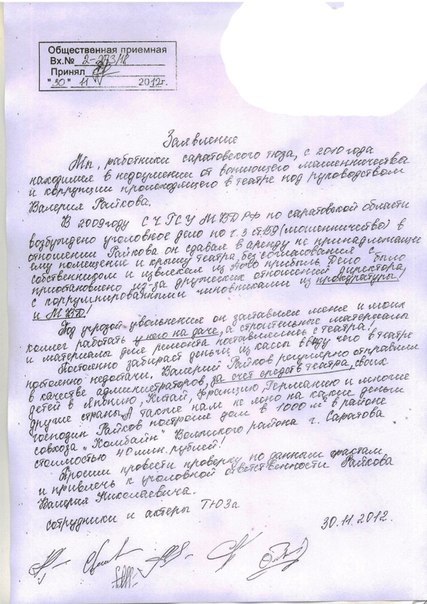 Общественная приемная
Вх.№ 2-273/12
Принял
"30" 11 2012г.
Заявление
Мы, работники саратовского тюза, с 2010 года
находимся в недоумении от вопиющего мошенничества
и коррупции происходящего в театре под руководством
Валерия Райкова.
В 2009 году С Ч ГСУ МВД РФ по саратовской области
возбуждено уголовное дело по ч. 3 ст. 159 (мошенничество) в
отношении Райкова он сдавал в аренду не принадлежащие
ему помещение и крышу театра, без согласования с
собственником и извлекал из этого прибыль Дело было
приостановлено из-за дружеских отношений директора,
с коррумпированными чиновниками из прокуратуры
и МВД!
Под угрозой увольнения он заставлял меня и моих
коллег работать у него на даче, а строительные материалы
и материалы для ремонта поставлялись с театра!
Постоянно забирает деньги из кассы ввиду чего в театре
постоянно недостачи. Валерий Райков регулярно отправлял
в качестве администраторов, за счет средств театра, своих
детей в Японию, Китай, Францию, Германию и многие
другие страны. А также нам не ясно на какие деньги
господин Райков построил дом в 1000 м² в районе
совхоза „Комбайн" Волжского района г. Саратова
стоимостью 40 млн. рублей!
Просим провести проверку по данным фактам
и привлечь к уголовной ответственности Райкова
Валерия Николаевича.
сотрудники и актеры ТЮЗа
30.11.2012.